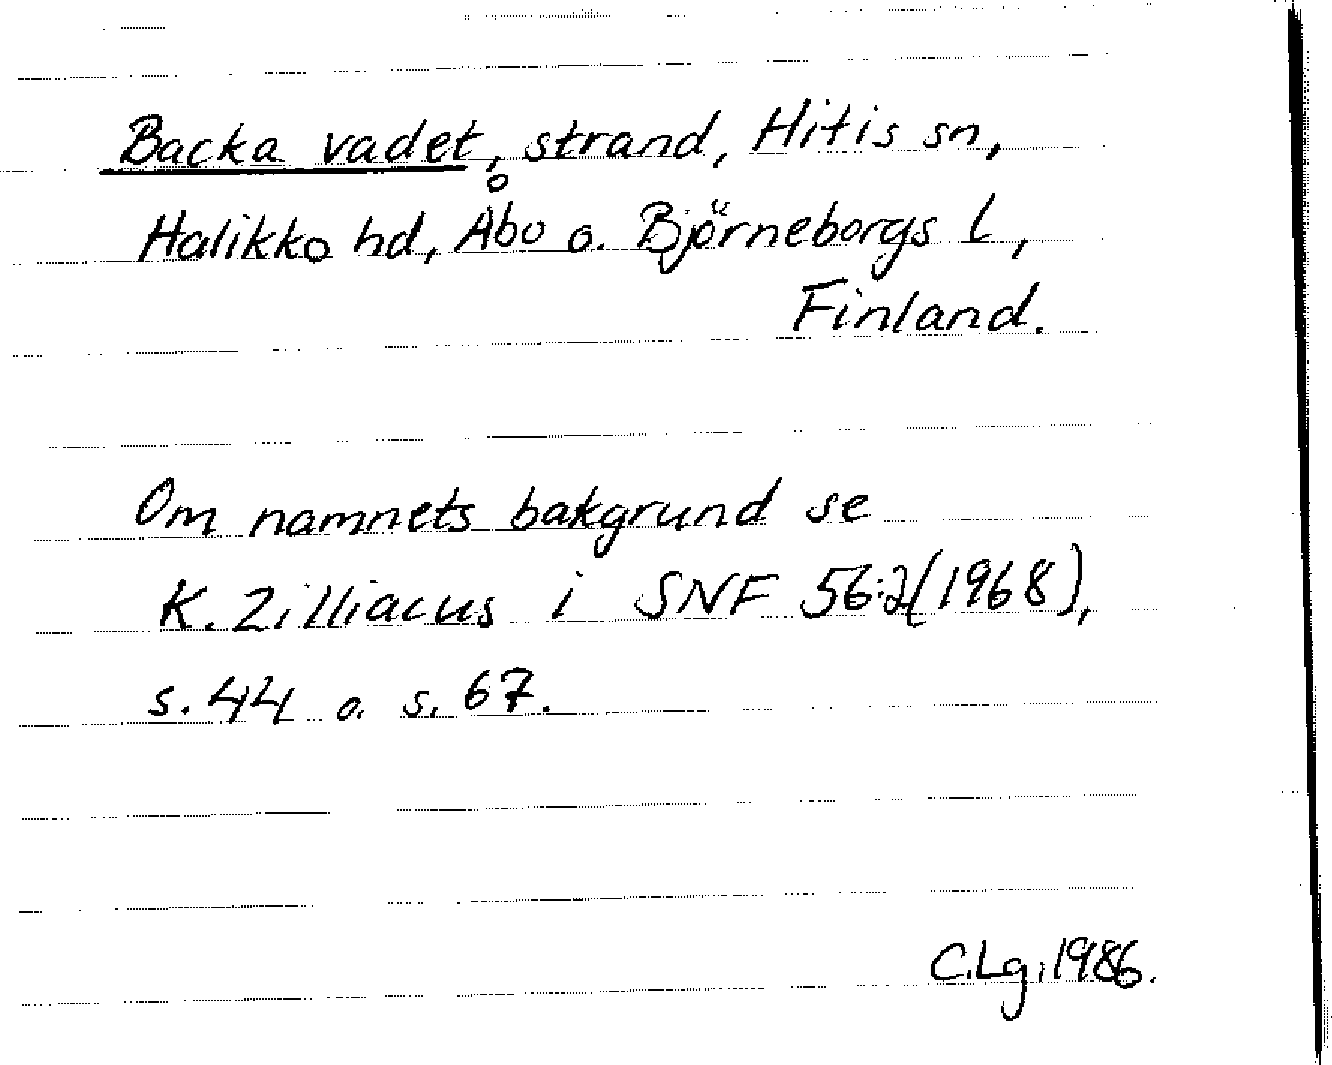 Backa vadet, strand, Hitis sn,
Halikko hd, Åbo o. Björneborgs l,
Finland.
Om namnets bakgrund se
K. Zilliacus i SNF 56:2(1968),
s. 44 o. s. 67.
C.Lg. 1986.